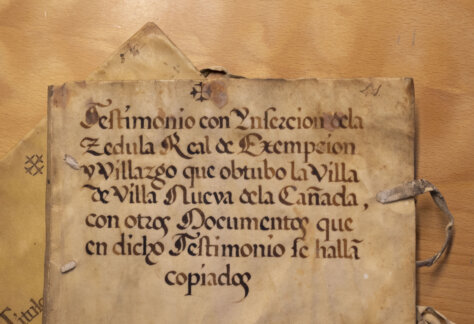 Testimonio con Ynsercion dela
Zedula Real de Exempzion
y Villazgo que obtubo la Villa
de Villa Nueva dela Cañada,
con otros Documentos que
en dicho Testimonio se hallã
copiados
Titulo